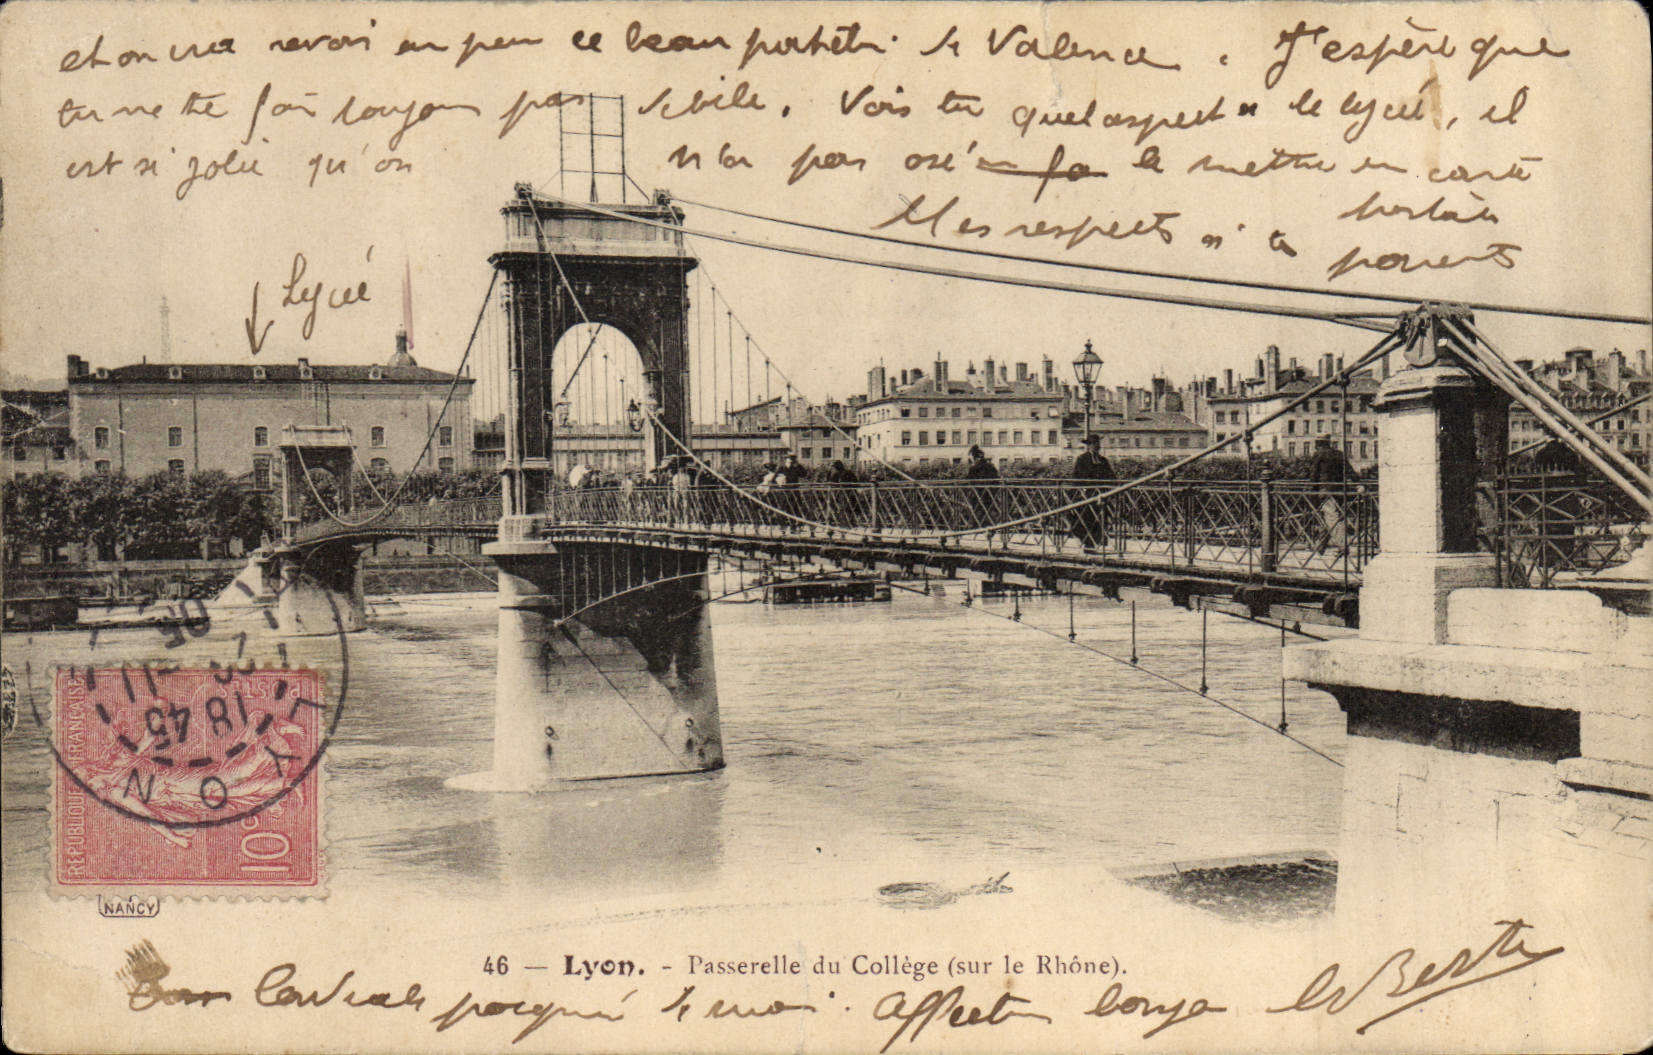 et on va revoir un peu ce beau patelin de Valence. J'espère que
tu ne te fais toujours pas de bile. Vois tu quel aspect a le lycée, il
est si joli qu'on n'a pas osé le mettre en carte
postale
Mes respects à tes parents
Lycée
RÉPUBLIQUE FRANÇAISE
POSTES
10c
LYON
18 45
11
05
NANCY
46 — Lyon. - Passerelle du Collège (sur le Rhône).
de moi. Affectu bonjo
Berth